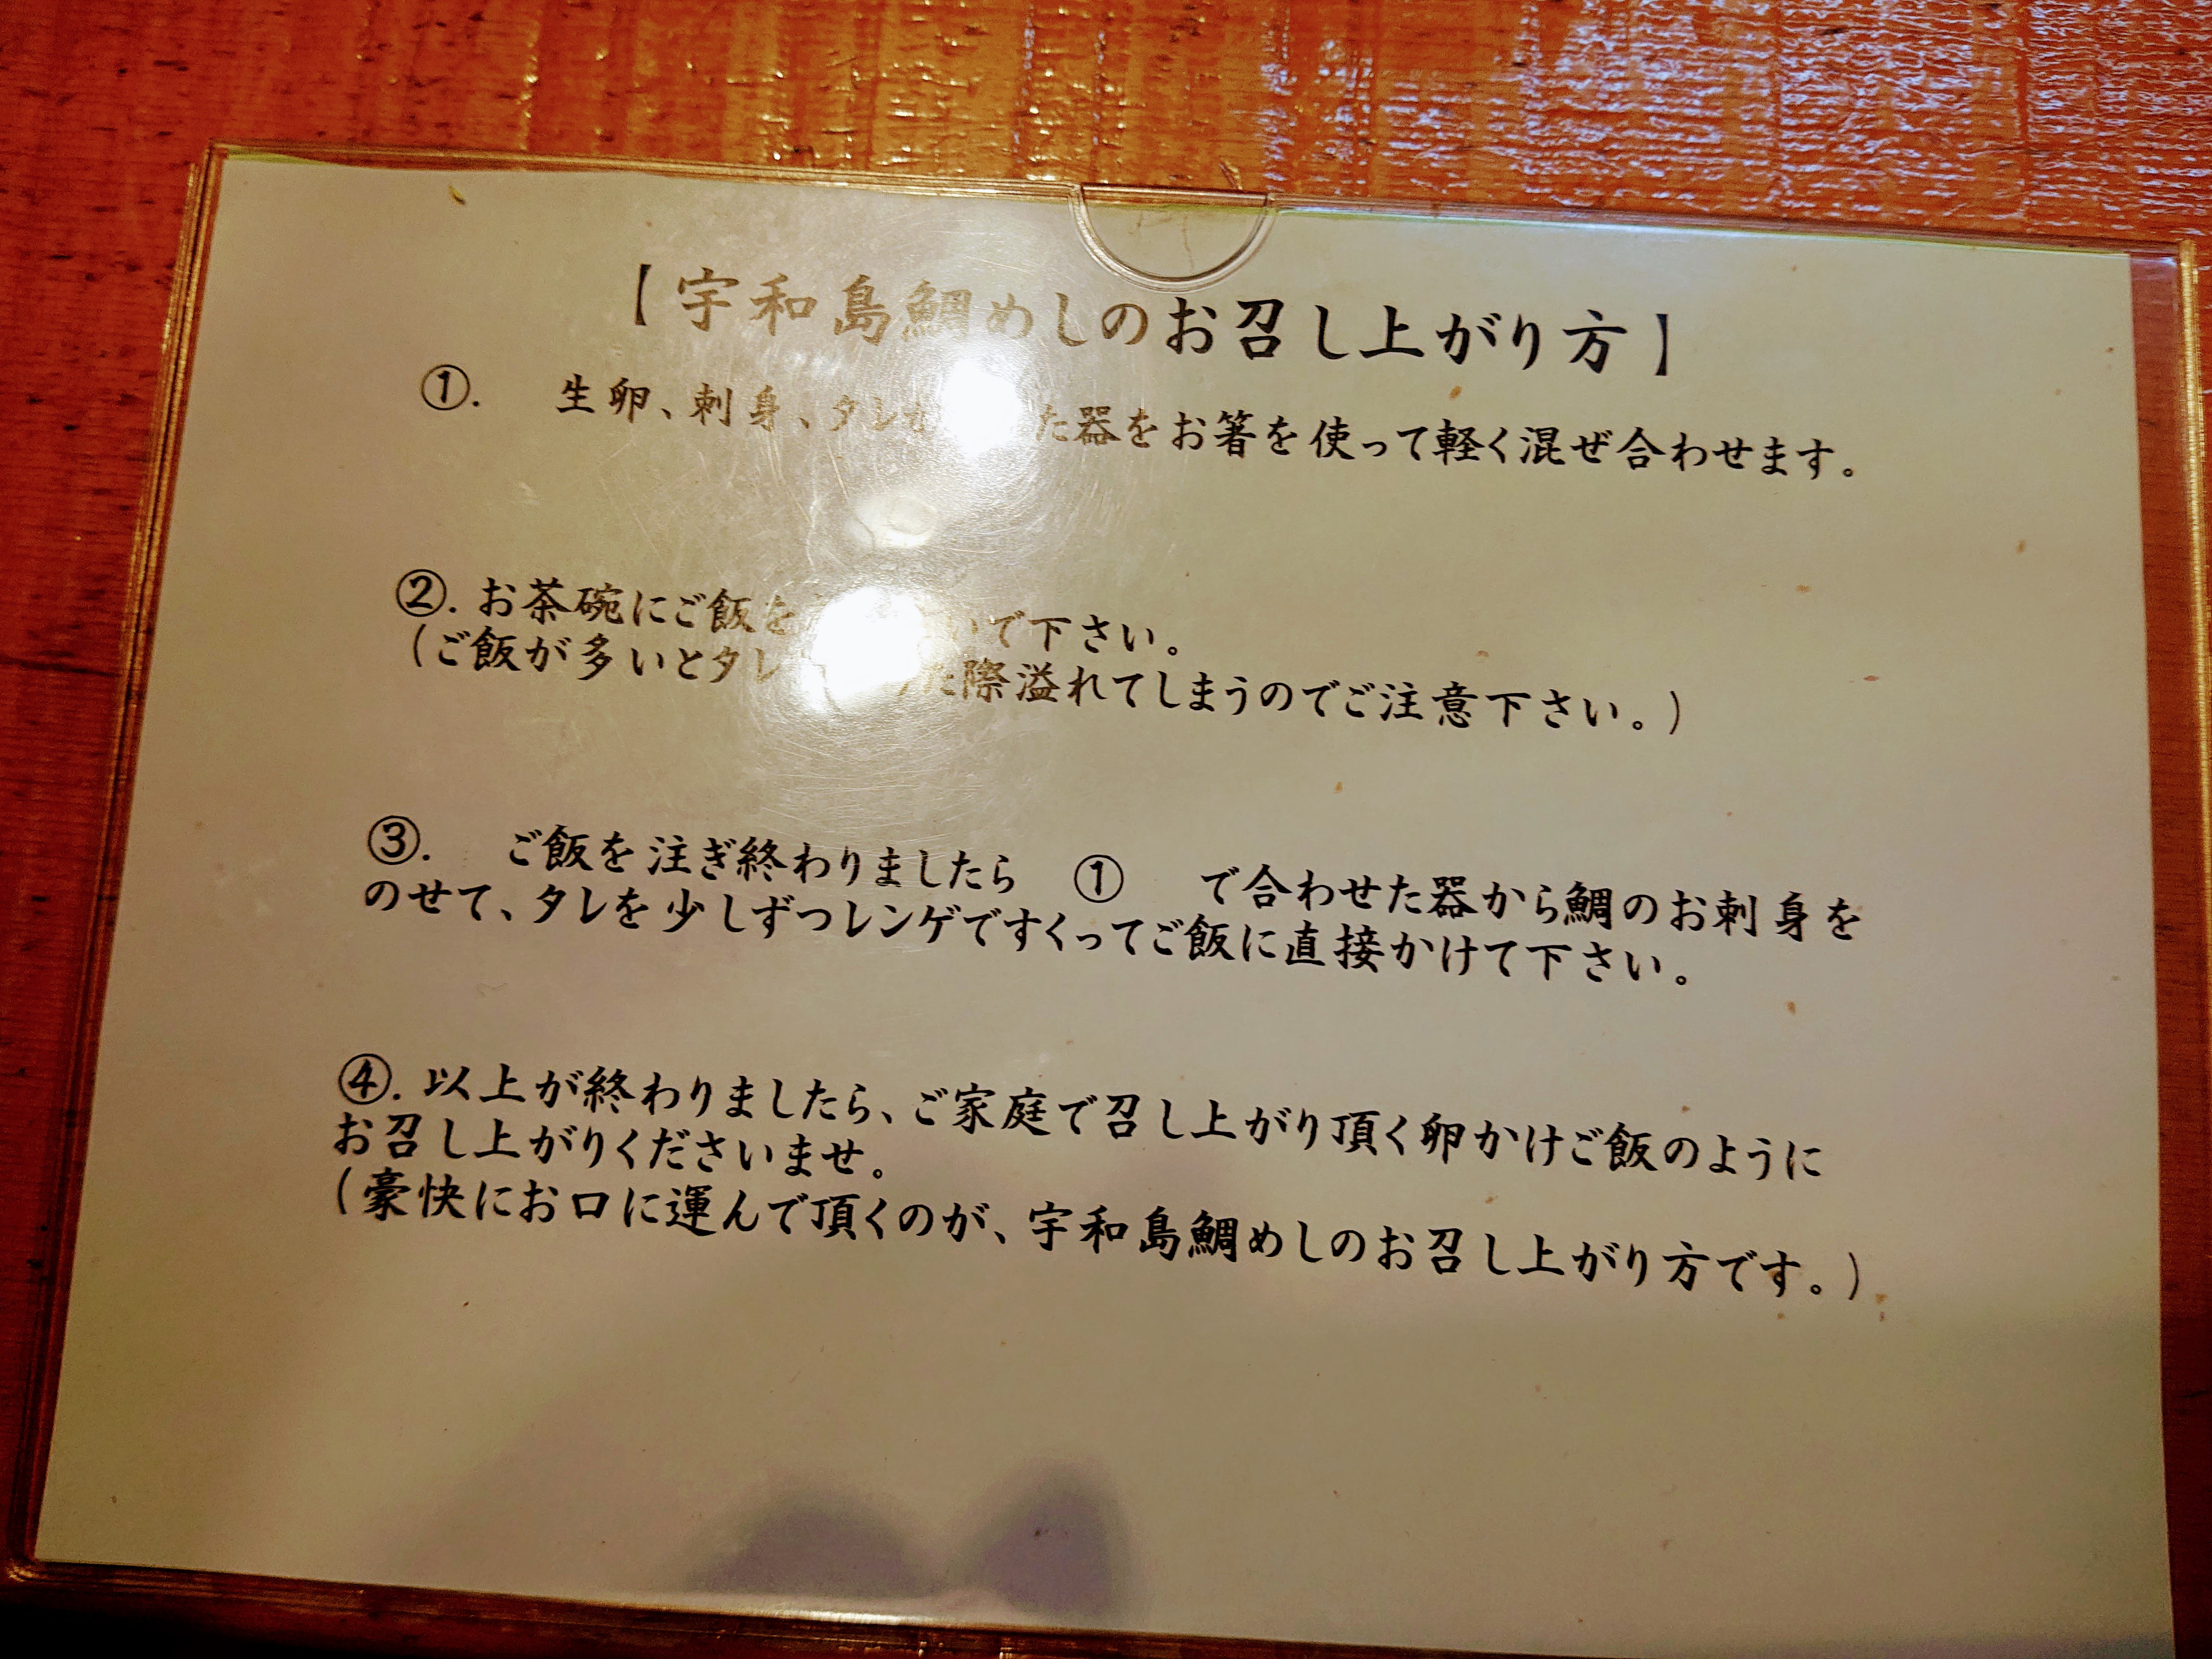 【宇和島鯛めしのお召し上がり方】
①. 生卵、刺身、タレ た器をお箸を使って軽く混ぜ合わせます。
②. お茶碗にご飯を いで下さい。
(ご飯が多いとタレ た際溢れてしまうのでご注意下さい。)
③. ご飯を注ぎ終わりましたら ① で合わせた器から鯛のお刺身を
のせて、タレを少しずつレンゲですくってご飯に直接かけて下さい。
④. 以上が終わりましたら、ご家庭で召し上がり頂く卵かけご飯のように
お召し上がりくださいませ。
(豪快にお口に運んで頂くのが、宇和島鯛めしのお召し上がり方です。)